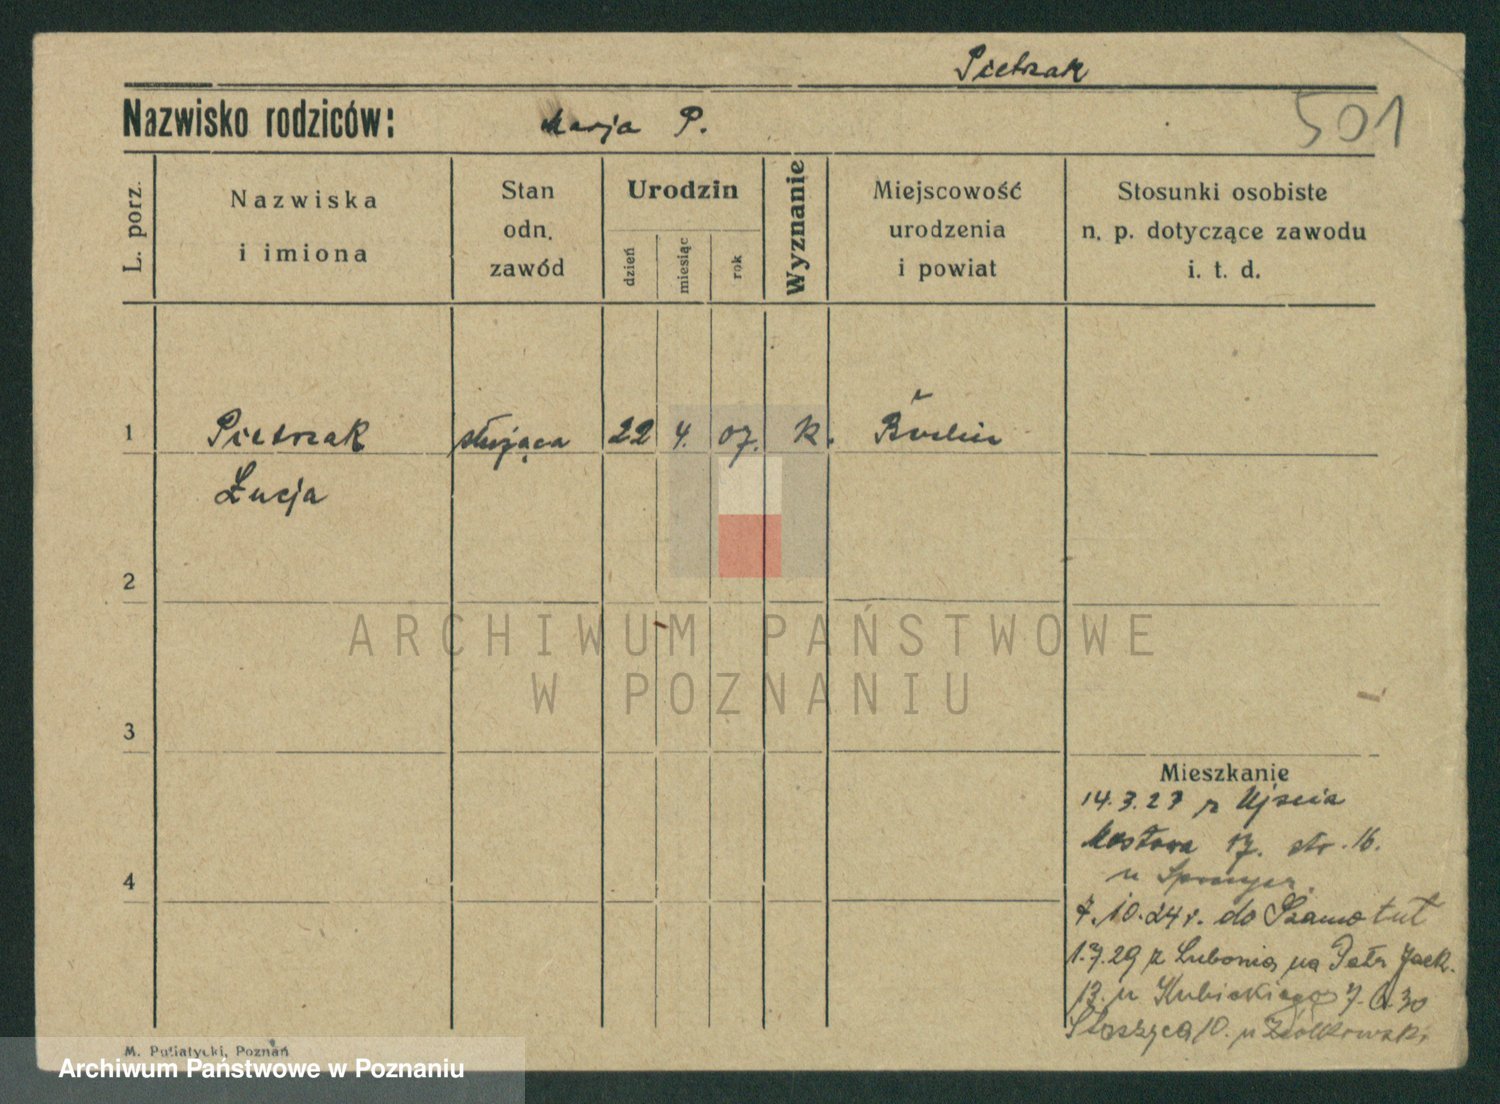 Pietrzak
501
Nazwisko rodziców: Marja P.
L. porz.
Nazwiska
i imiona
Stan
odn.
zawód
Urodzin
dzień
miesiąc
rok
Wyznanie
Miejscowość
urodzenia
i powiat
Stosunki osobiste
n. p. dotyczące zawodu
i. t. d.
1 Pietrzak służąca 22 4. 07. k.
Łucja
2
ARCHIWUM PAŃSTWOWE
W POZNANIU
3
Mieszkanie
14.3.27 z Ujścia
Mostowa 17. str. 16.
u
4
7.10.24 r. do Szamotuł
1.7.29 z Lubonia, na Patr Jack.
13. u Kubickiego 7.6.30
Staszyca 10. u Ziółkowski
M. Putiatycki, Poznań
Archiwum Państwowe w Poznaniu